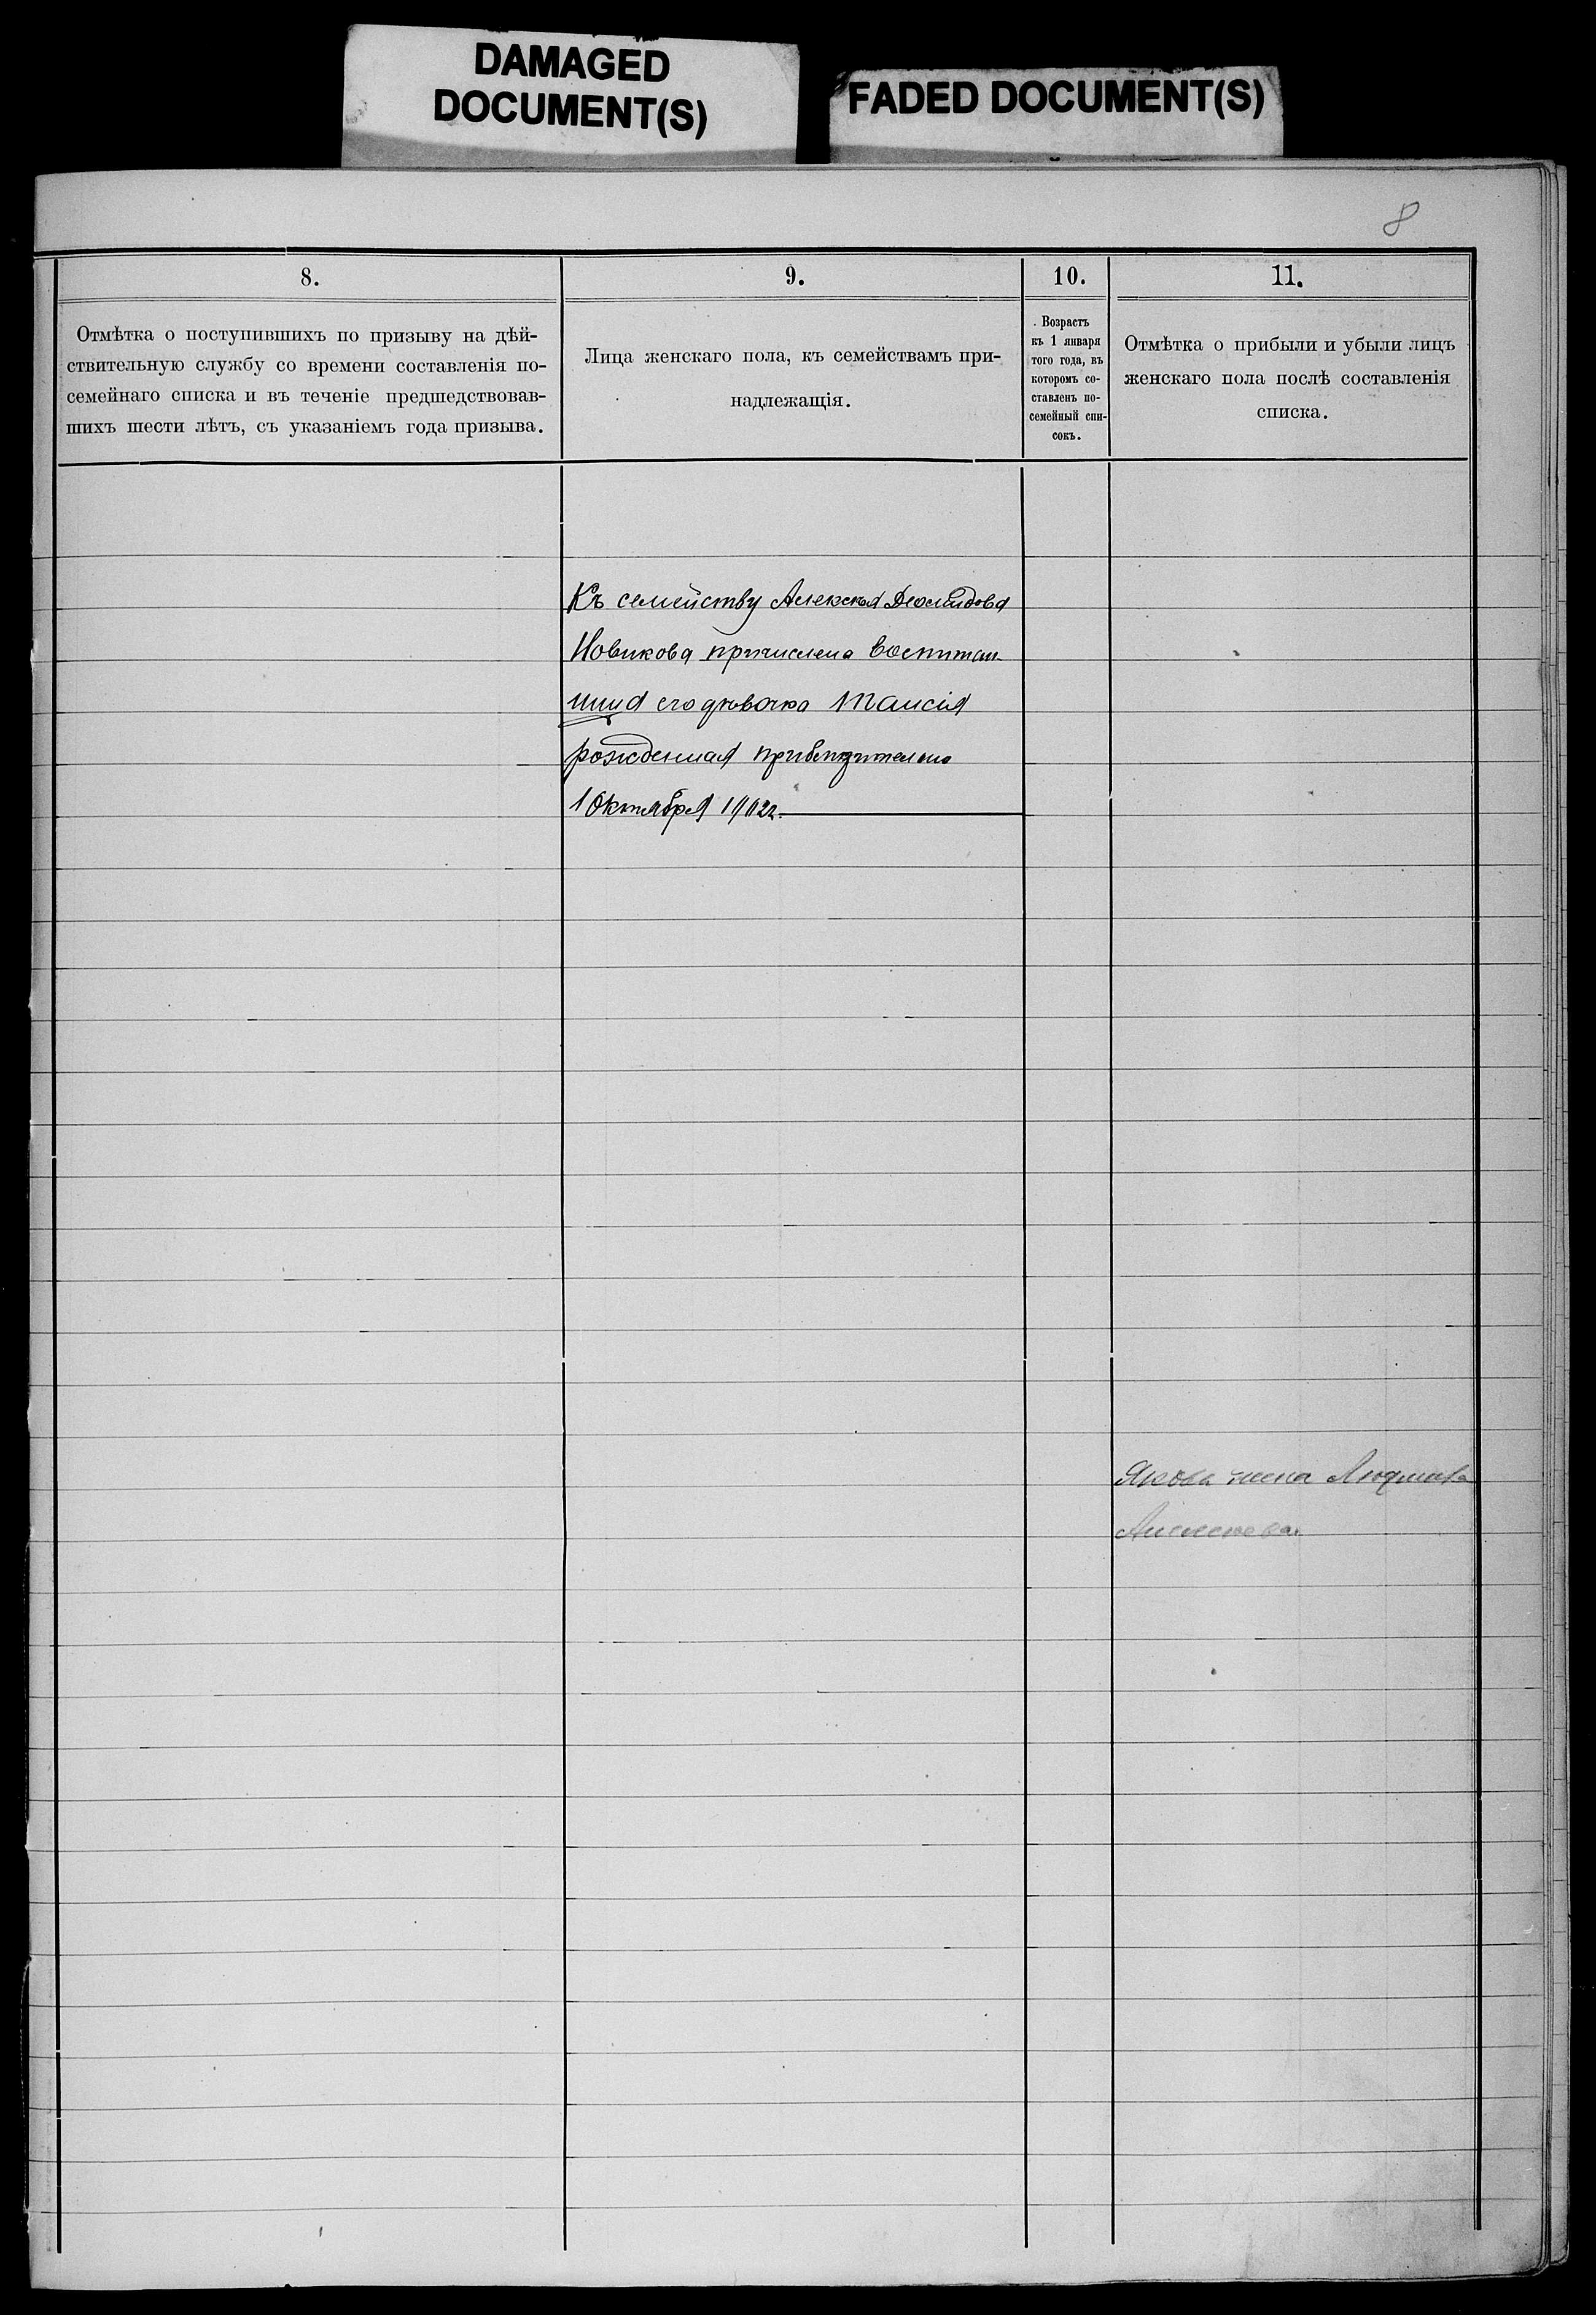 DAMAGED
DOCUMENT(S)
FADED DOCUMENT(S)
8
8.
9.
10.
11.
Отмѣтка о поступившихъ по призыву на дѣй-
ствительную службу со времени составленія по-
семейнаго списка и въ теченіе предшедствовав-
шихъ шести лѣтъ, съ указаніемъ года призыва.
Лица женскаго пола, къ семействамъ при-
надлежащія.
Возрастъ
къ 1 января
того года, въ
которомъ со-
ставленъ по-
семейный спи-
сокъ.
Отмѣтка о прибыли и убыли лицъ
женскаго пола послѣ составленія
списка.
Къ семейству Алексѣя
Новикова причислена воспитан-
ница его дѣвочка Таисія
рожденная приблизительно
1 Октября 1902г.
Якова жена